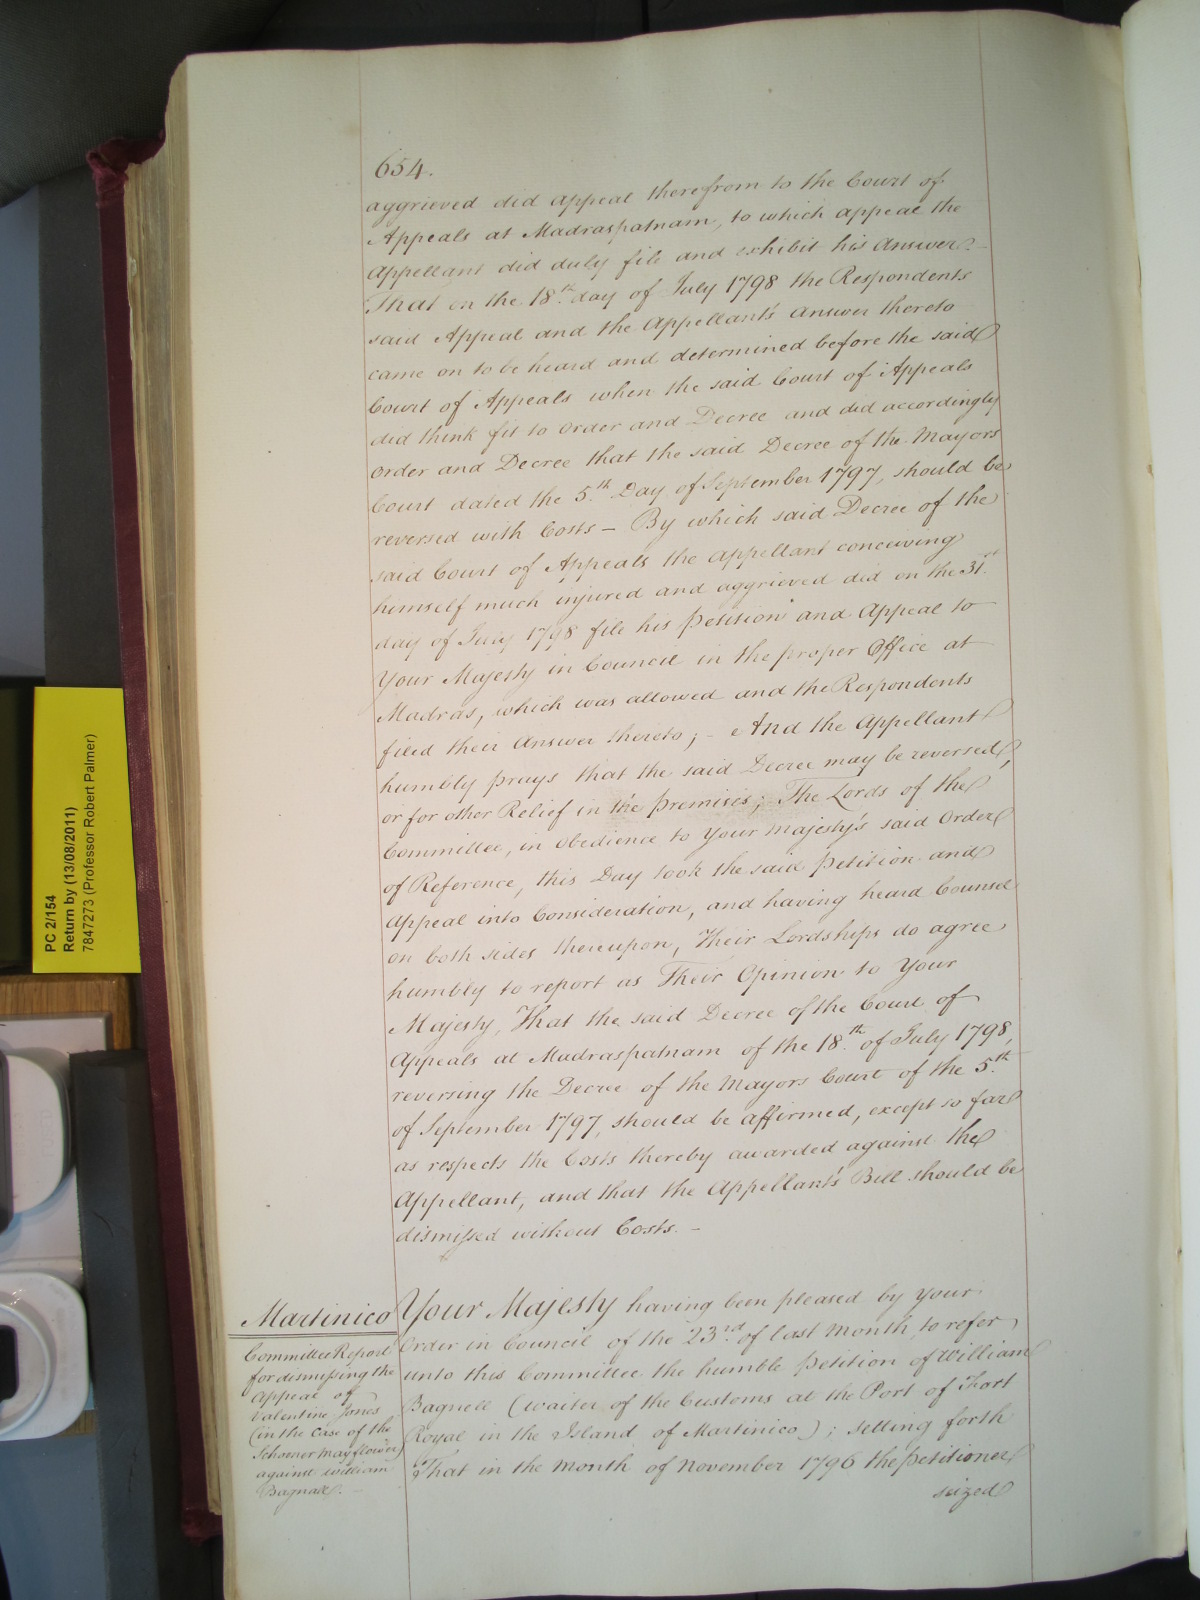 654.
aggrieved did appeal therefrom to the Court of
Appeals at Madraspatnam, to which appeal the
Appellant did duly file and exhibit his Answer.—
That on the 18.th day of July 1798 the Respondents
said Appeal and the Appellant's Answer thereto
came on to be heard and determined before the said
Court of Appeals when the said Court of Appeals
did think fit to Order and Decree and did accordingly
Order and Decree that the said Decree of the Mayors
Court dated the 5.th Day of September 1797, should be
reversed with Costs — By which said Decree of the
said Court of Appeals the Appellant conceiving
himself much injured and aggrieved did on the 31.st
day of July 1798 file his Petition and Appeal to
Your Majesty in Council in the proper Office at
Madras, which was allowed and the Respondents
filed their Answer thereto; — And the Appellant
humbly prays that the said Decree may be reversed,
or for other Relief in the premises; The Lords of the
Committee, in Obedience to Your Majesty's said Order
of Reference, this Day took the said Petition and
Appeal into Consideration, and having heard Counsel
on both sides thereupon, Their Lordships do agree
humbly to report as Their Opinion to Your
Majesty, That the said Decree of the Court of
Appeals at Madraspatnam of the 18.th of July 1798,
reversing the Decree of the Mayors Court of the 5.th
of September 1797, should be affirmed, except so far
as respects the Costs thereby awarded against the
Appellant, and that the Appellant's Bill should be
dismissed without Costs. —
Martinico
Committee Report
for dismissing the
Appeal of
Valentine Jones
(in the Case of the
Schooner Mayflower)
against William
Bagnall. —
Your Majesty having been pleased by your
Order in Council of the 23.rd of last Month, to refer
unto this Committee the humble Petition of William
Bagnell (Waiter of the Customs at the Port of Fort
Royal in the Island of Martinico); setting forth
That in the Month of November 1796 the Petitioner
seized
PC 2/154
Return by (13/08/2011)
7847273 (Professor Robert Palmer)